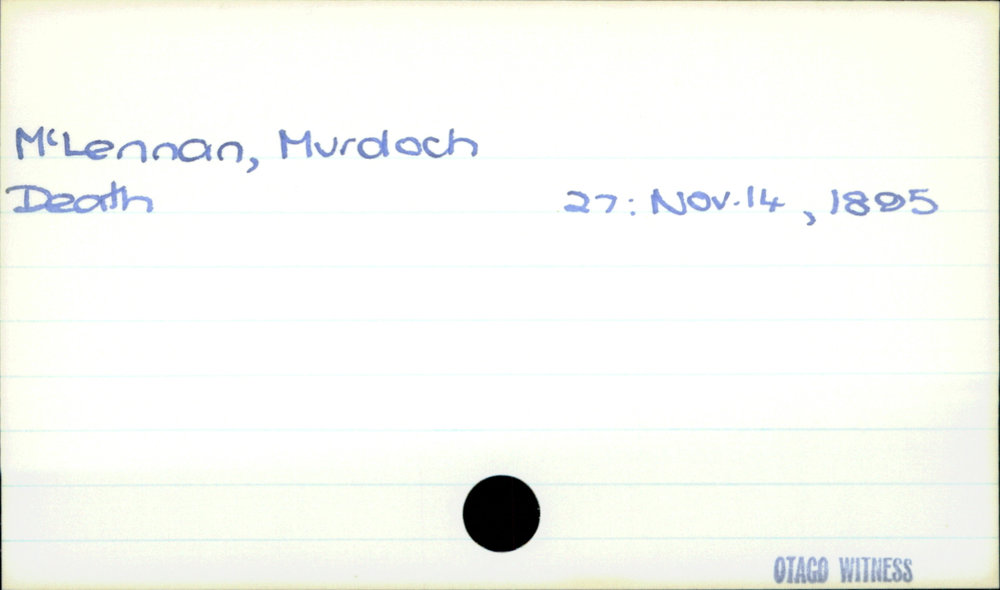 M‘Lennan, Murdoch
Death 27: Nov. 14, 1895
OTAGO WITNESS